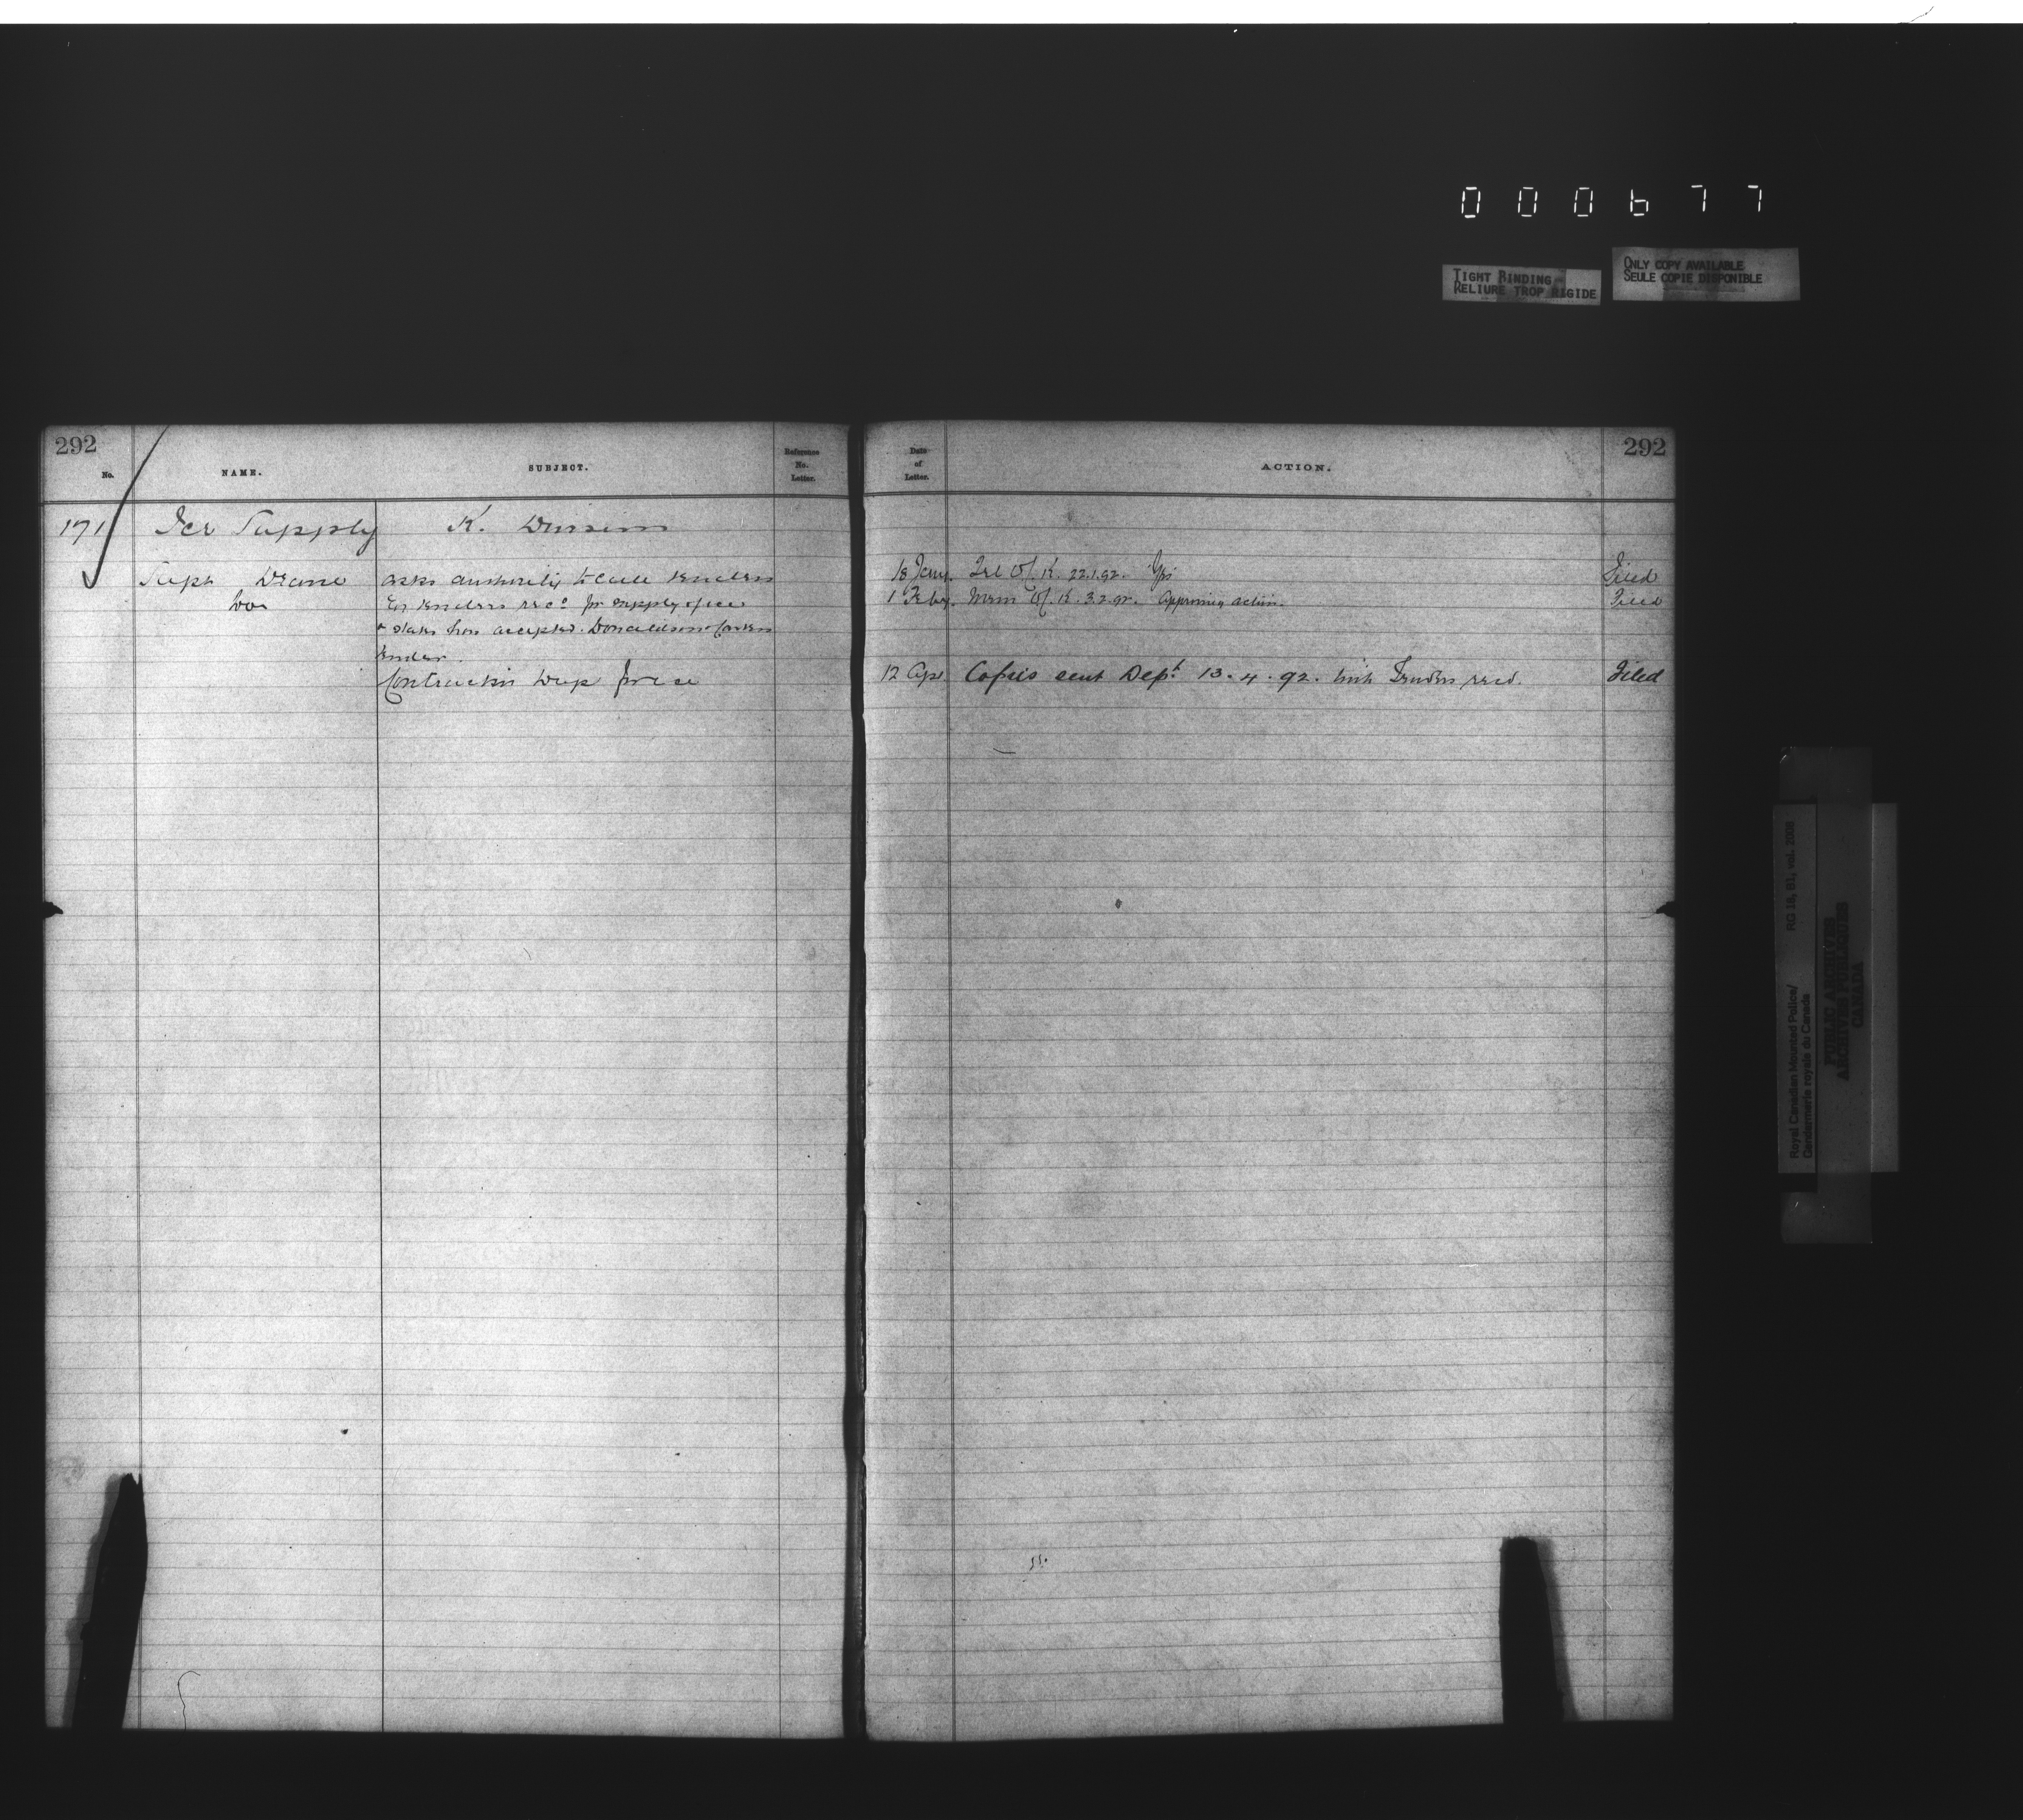 000677
TIGHT BINDING
RELIURE TROP RIGIDE
ONLY COPY AVAILABLE
SEULE COPIE DISPONIBLE
292
No.
NAME.
SUBJECT.
Reference
No.
Letter.
171 Ice Supply K. Division
Supt Deane asks authority to call tenders
do En tenders recd for supply of ice
& states has accepted Donaldson
tender.
Contract in Dup for ice
292
Date
of
Letter.
ACTION.
18 Jany. Tel O/C. K. 22.1.92. Yes Filed
1 Feby. Mem O/C. K. 3.2.92. Approving action. Filed
12 Apl Copies sent Dept 13.4.92. with Tenders recd. Filed
Royal Canadian Mounted Police/
Gendarmerie royale du Canada
RG 18, B1, vol.
PUBLIC ARCHIVES
ARCHIVES PUBLIQUES
CANADA